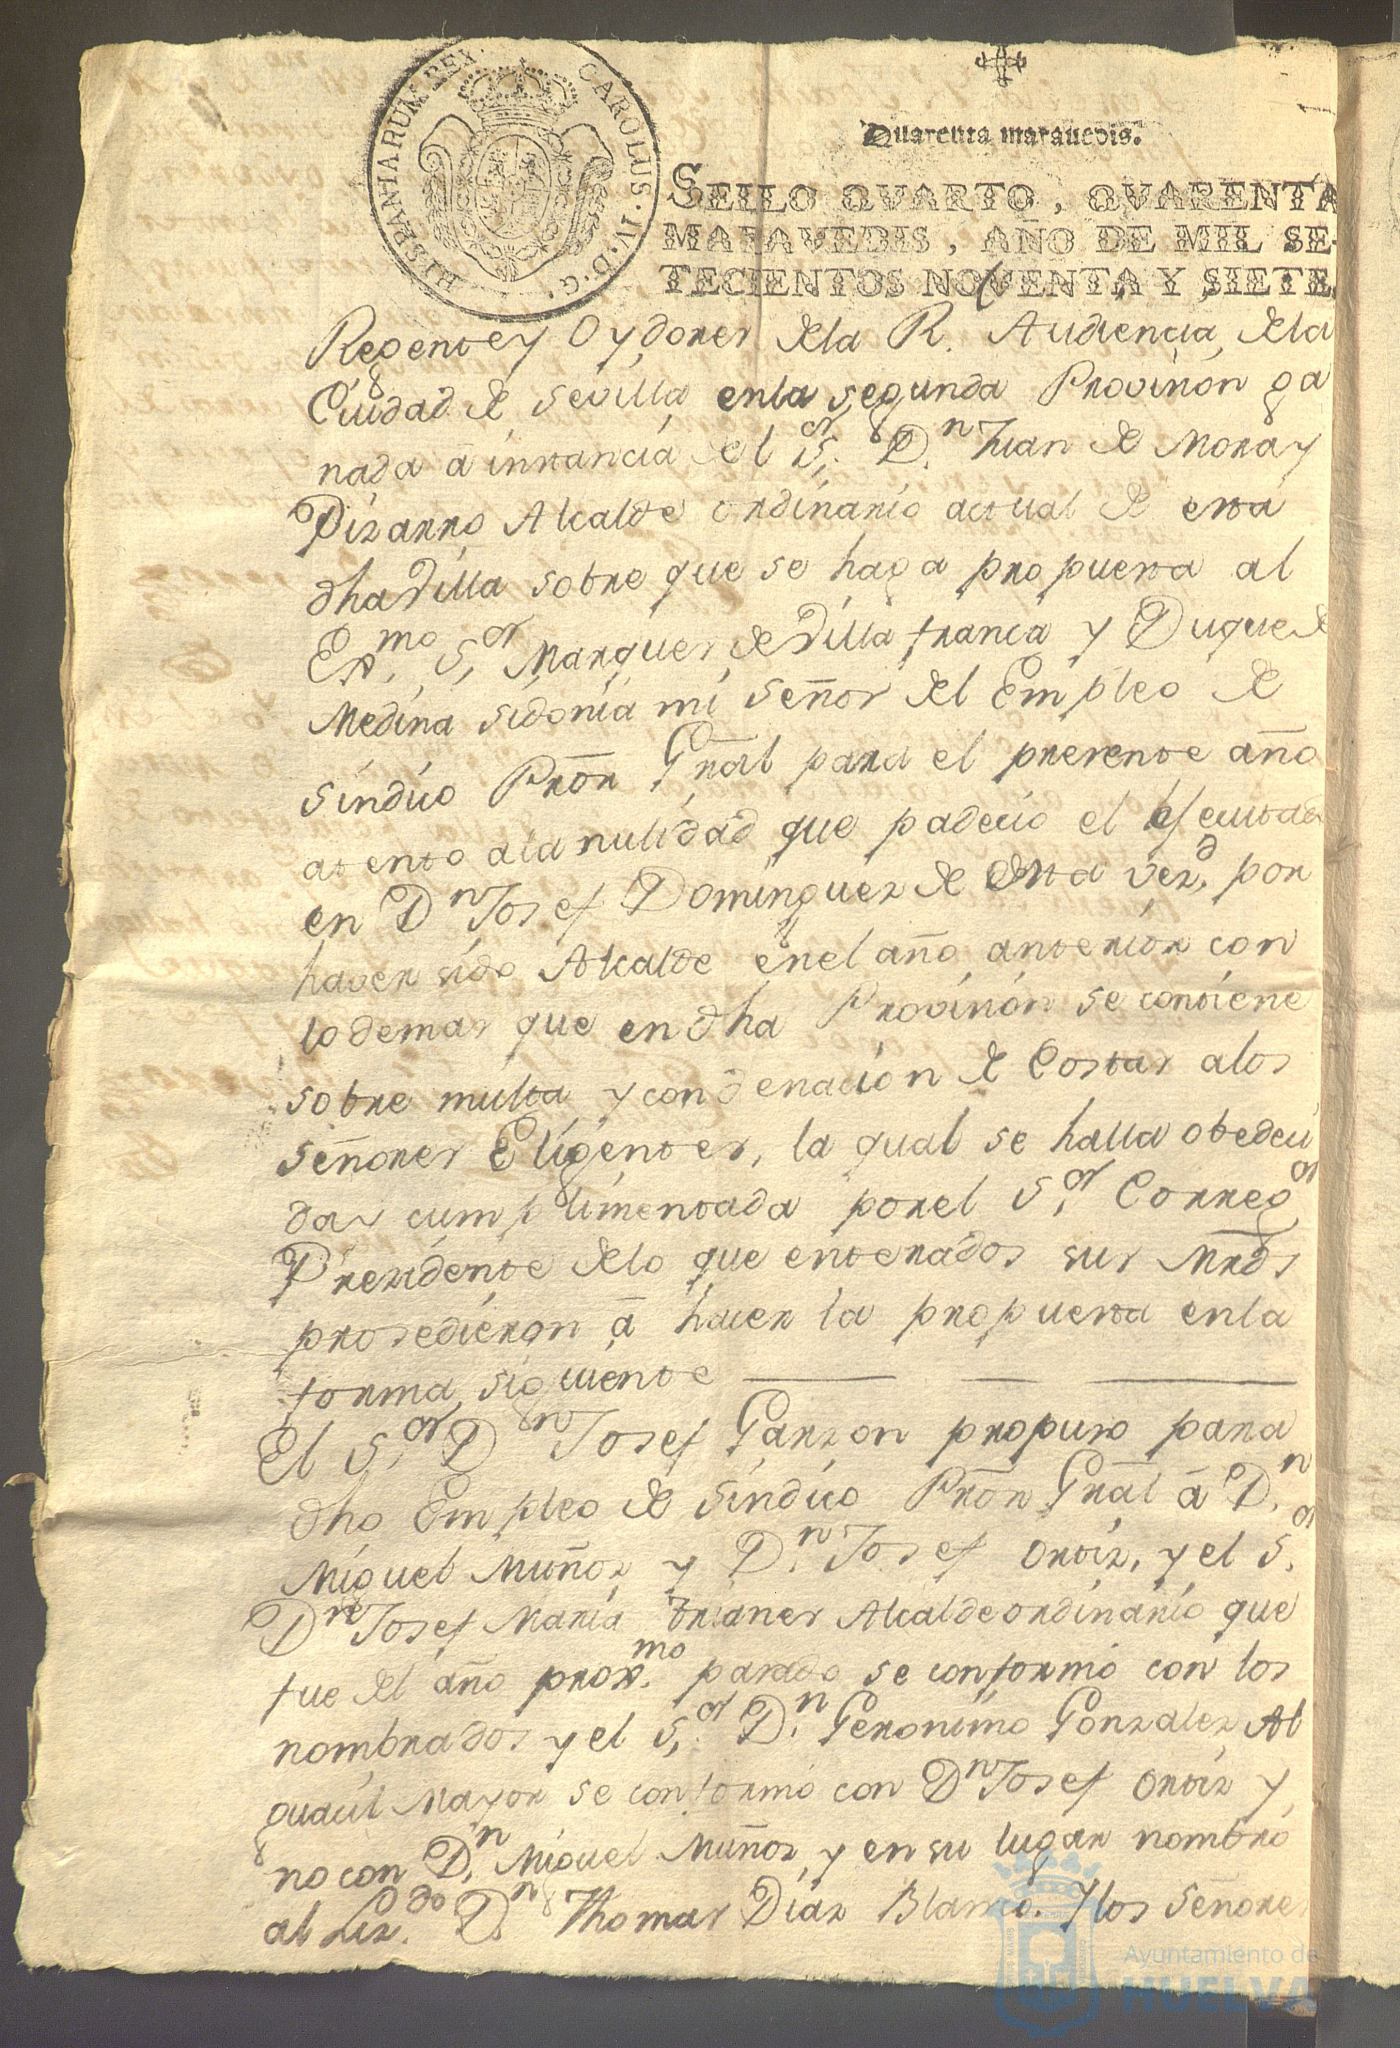 HISPANIARUM REX. CAROLUS. IV. D. G.
Quarenta maravedis.
SELLO QVARTO, QVARENTA
MARAVEDIS, AÑO DE MIL SE-
TECIENTOS NOVENTA Y SIETE.
Regente y Oydores dela R. Audiencia dela
Ciudad de Sevilla enla segunda Provision ga
nada â instancia del S.or D.n Juan de Mora y
Pizarro Alcalde ordinario actual de esta
dha Villa sobre que se haga propuesta al
Exmo. S.or Marques de Villafranca y Duque de
Medina Sidonia mi Señor del Empleo de
Sindico Pror̃ Gral̃ para el presente año
atento ala nulidad que padecio el efecutado
en D.n Josef Dominguez de esta vez.d por
haver sido Alcalde enel año anterior con
lo demas que en dha Provision se contiene
sobre multa y condenacion de Costas alos
Señores Eligentes, la qual se halla obedeci
da y cumplimentada porel S.or Correg.or
Presidente delo que enterados sus Mrds̃
prosedieron â hacer la propuesta enla
forma siguiente
El S.or D.n Josef Garzon propuso para
dho Empleo de Sindico Pror̃ Gral̃ â D.n
Miguel Muñoz y D.n Josef Ortiz, y el S.or
D.n Josef Maria Trianes Alcalde ordinario que
fue el año prox.mo pasado se conformó con los
nombrados y el S.or D.n Geronimo Gonzalez Al
guacil Mayor se conformó con D.n Josef Ortiz y
no con D.n Miguel Muñoz y en su lugar nombró
al Liz.do D.n Thomas Diaz Blanco. Y los Señores
Ayuntamiento de
HUELVA